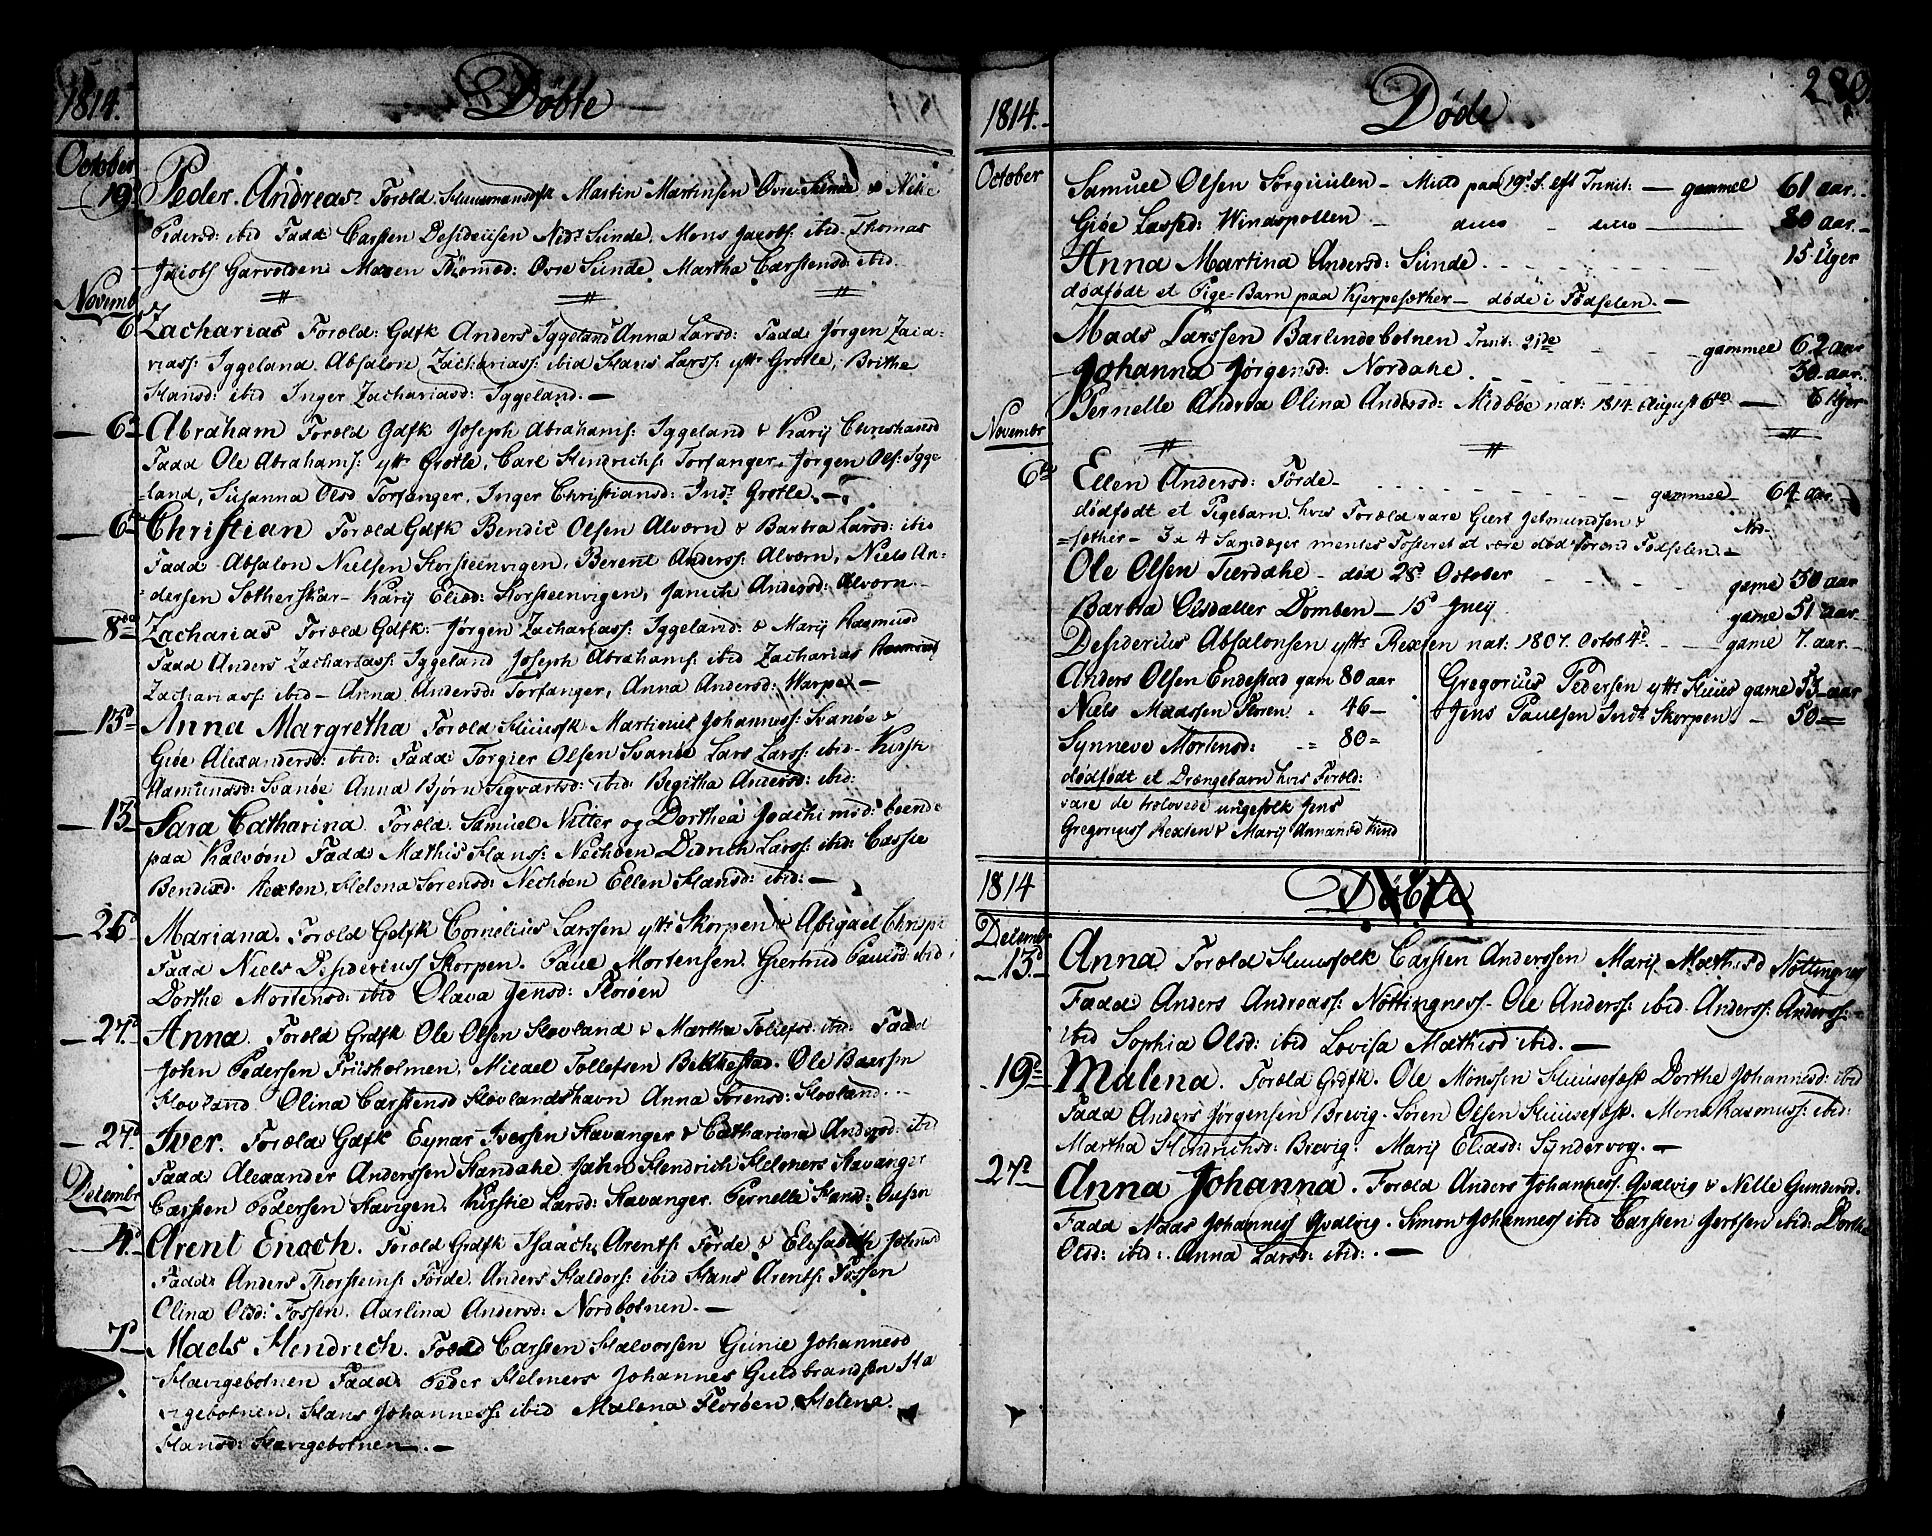 1814.
Döbte
October
19d Peder Andreas. Foræld. Huusmandsfk Martin Martinsen Øvre Sunde & Nille
Pedersd: ibid Fadd: Carsten Desideriisen Nedr Sunde. Mons Jacobs: ibid. Thomas
Jacobs Garvolden Maren Thomed: Øvre Sunde, Martha Carstensd: ibid.
Novembr
6 Zacharias Foræld: Gdfk Anders Iggeland Anna Larsd: Fadd Jørgen Zacha-
riass: Iggeland. Absalon Zachariass: ibid Hans Larss: yttr Grotle, Brithe
Hansd: ibid Inger Zachariasd: Iggeland.—
6 Abraham Foræld Gdfk Joseph Abrahams: Iggeland & Karij Christiansd
Fadd Ole Abrahams: yttr Grotle, Carl Hindrichs: Torfanger, Jørgen Ols: Igge-
land, Susanna Olsd Torfanger, Inger Christiansd: Indr Grotle.—
6 Christian Foræld Gdfk Bendic Olsen Alvorn & Barbra Larsd: ibid
Fadd Absalon Nielsen Horsteenvigen, Berent Anderss: Alvorn, Niels An-
dersen Sætherskar— Karij Eliesd: Horsteenvigen, Janich Andersd: Alvorn
8de Zacharias Foræld Gdfk: Jørgen Zachariass: Iggeland: & Marij Rasmusd
Fadd Anders Zachariass: Iggeland Joseph Abrahams: ibid Zacharias
Zachariass: ibid— Anna Andersd: Torfanger, Anna Andersd: Warpe—
13d Anna Margretha Foræld Huusfk Martinus Johanness: Svanøe &
Giøe Alexandersd: ibid: Fadd Torgier Olsen Svanøe Lars Larss: ibid— Kirst:
Aamundsd: Svanøe Anna Bjørn Segvartsd: ibid: Begitha Andersd: ibid:
13 Sara Catharina. Foræld. Samuel Nitter og Dorthea Joachimsd: boende
paa Kalvøen Fadd Mathis Hanss: Nechøen Didrich Larss: ibid: Cassie
Bendixd: Rexten, Helena Sorensd: Nechøen Ellen Hansd: ibid:—
26d Mariana. Foræld Gdfk Cornelius Larssen yttr Skorpen & Abigael Christi
Fadd Niels Desideriuss Skorpen. Paul Mortensen. Giertrud Paulsd: ibid
Dorthe Mortensd: ibid Olava Jensd: Florøen
27d Anna. Foræld Grdfk Ole Olsen Hovland & Martha Tollefsd: ibid: Fadd
John Pedersen Friisholmen, Micael Tollefsen Bekkestad. Ole Baersen
Hovland. Olina Carstensd Hovlandshavn Anna Sorensd: Hovland.
27d Iver. Foræld Gdfk Eynar Iversen Stavanger & Catharina Andersd: ibid
Fadd Alexander Anderssen Standahl John Hendrich Helmers Stavanger
Decembr
Carsten Pedersen Havigen. Kirstie Larsd: Stavanger. Pernelle Hansd: Husen
4d Arent Enoch. Foræld Grdfk Isaach Arents: Förde & Elisabeth Johnsd
Fadd: Anders Thorsteins: Förde. Anders Haldors: ibid Hans Arents: Fossen
Olina Olsd: Fossen. Aarlina Andersd: Nordbotnen.—
7d Mads Hendrich. Foræld Carsten Halvorsen Gunie Johannesd
Havigebotnen Fadd: Peder Helmers Johannes Guldbrandsen Ha
vigebotnen. Hans Johanness: ibid Malena Florøen, Helena
Hansd: Havigebotnen—.—
280.
1814.
Döde
October Samuel Olsen Sorguulen— Miid paa 19d S. eft Trinit:— gammel 61 aar.
Giøe Lassed: Windspollen— dito — dito — 80 aar.
Anna Martina Andersd: Sunde. 15 Uger
dödfödt et Pige-Barn paa Hjerpesæther— döde i Födselen.—
Mads Larssen Barlindebotnen Trinit: 21de — gammel 62 aar
Johanna Jørgensd: Nordahl. 50 aar.
Pernelle Andrea Olina Andersd: Midbøe nat: 1814. August 6te— 6 Uger
Novembr
6te Ellen Andersd: Förde— gammel— 64 aar.
dödfödt et Pigebarn, hvis Foræld vare Giert Jetmundsen & Nod-
sæther— 3 a 4 Sandæger mentes Fosteret at være död forend Födselen.—
Ole Olsen Tierdahl— död 28d October game 50 aar
Barbra Olsdatter Domben— 15d Juij game 51 aar
Desiderius Absalonsen yttr Rexten nat: 1807. Octob 4d.— game 7. aar
Anders Olsen Endestad gam 80 aar
Niels Madssen Floren „ 46—
Synneve Mortensd: „ 80—
dödfödt et Drængebarn hvis Foræld:
vare de trolovede ungefolk Jens
Gregoriuss Rexten & Marij Amansd Kind
Gregorius Pedersen yttr Huus game 53 aar
Jens Paulsen Indr Skorpen.— 50—
1814
Döbte
Decembr
13d Anna. Foræld Huusfolk Carsten Anderssen Marij Mathisd Nöttingnes
Fadd: Anders Andreass: Nöttingness— Ole Anderss: ibid. Anderss: Anderss:
ibid Sophia Olsd: ibid Lovisa Mathisd ibid.—
19d Malena. Foræld Grdfk. Ole Monssen Huusefæst Dorthe Johannesd: ibid
Fadd Anders Jørgensen Brevig. Sören Olsen Huusefæst. Mons Rasmuss: ibid:
Martha Hendrichsd: Brevig: Marij Eliasd: Syndervog.—
27d Anna Johanna. Foræld Anders Johanness. Qvalvig & Nelle Gundersd.
Fadd Mads Johanness Qvalvig. Simon Johanness ibid Carsten Jertsen ibid: Dorthe
Olsd: ibid:. Anna Larsd: ibid:.—